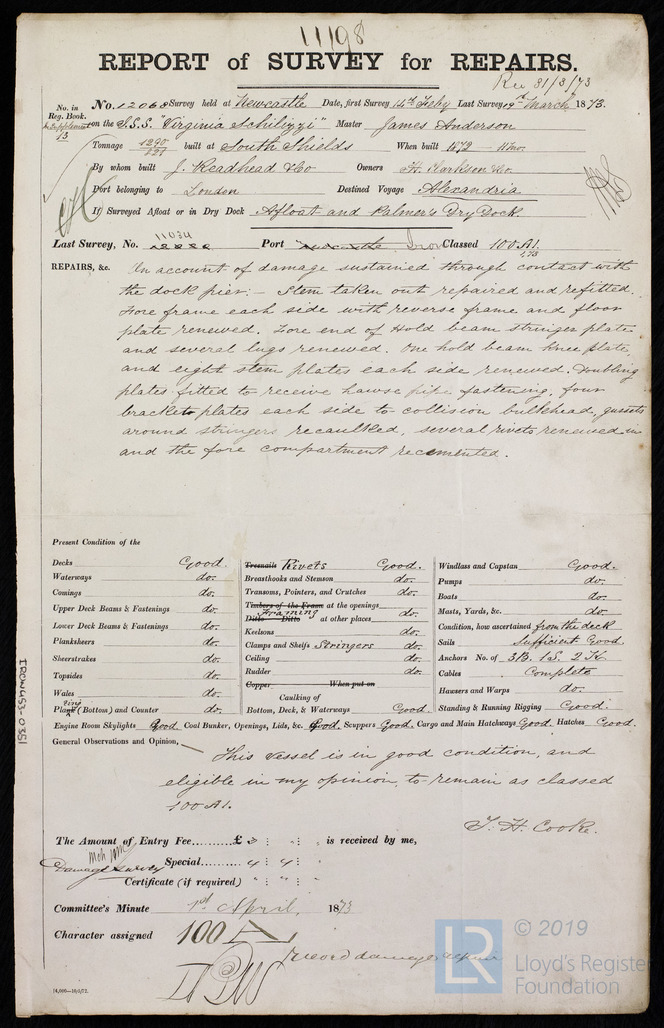 11198
REPORT of SURVEY for REPAIRS.
Rec 31/3/73
No. in Reg. Book. No. 12068 Survey held at Newcastle Date, first Survey 14th Feby Last Survey 19th March 1873.
Supplement 13 on the S.S.S. "Virginia Schilizzi" Master James Anderson
Tonnage 1290 built at South Shields When built 1872 - 11mo.
By whom built J. Readhead & Co Owners H. Clarkson & Co.
Port belonging to London Destined Voyage Alexandria
If Surveyed Afloat or in Dry Dock Afloat and Palmer's Dry Dock.
11034
Last Survey, No. Port Newcastle Iron Classed 100A1.
1,73
REPAIRS, &c. On account of damage sustained through contact with
the dock pier: - Stem taken out repaired and refitted.
Fore frame each side with reverse frame and floor
plate renewed. Fore end of Hold beam stringer plate
and several lugs renewed. One hold beam knee plate,
and eight stem plates each side renewed. Doubling
plates fitted to receive hawse pipe fastening, four
bracket plates each side to collision bulkhead, gussets
around stringers recaulked, several rivets renewed in
and the fore compartment recemented.
Present Condition of the
Decks Good.
Waterways do.
Comings do.
Upper Deck Beams & Fastenings do.
Lower Deck Beams & Fastenings do.
Planksheers do.
Sheerstrakes do.
Topsides do.
Wales do.
Plating (Bottom) and Counter do.
Treenails Rivets Good.
Breasthooks and Stemson do.
Transoms, Pointers, and Crutches do.
Timbers of the Frame at the openings
Framing do.
Ditto Ditto at other places
Keelsons do.
Clamps and Shelfs Stringers do.
Ceiling do.
Rudder do.
Copper When put on
Caulking of
Bottom, Deck, & Waterways Good.
Windlass and Capstan Good.
Pumps do.
Boats do.
Masts, Yards, &c. do.
Condition, how ascertained from the deck
Sails Sufficient Good
Anchors No. of 3B. 1S. 2K.
Cables Complete
Hawsers and Warps do.
Standing & Running Rigging Good.
Engine Room Skylights Good. Coal Bunker, Openings, Lids, &c. Good. Scuppers Good. Cargo and Main Hatchways Good. Hatches Good.
General Observations and Opinion,
This vessel is in good condition, and
eligible in my opinion, to remain as classed
100A1.
T. H. Cooke.
The Amount of Entry Fee £ 3 : " : " is received by me,
Damage Survey Special 4 : 4 : "
Certificate (if required) " : " : "
Committee's Minute 1st April, 1873
Character assigned 100A1
record damage repairs
14,000-10/5/72.
IRON453-0351
LR
© 2019
Lloyd's Register
Foundation